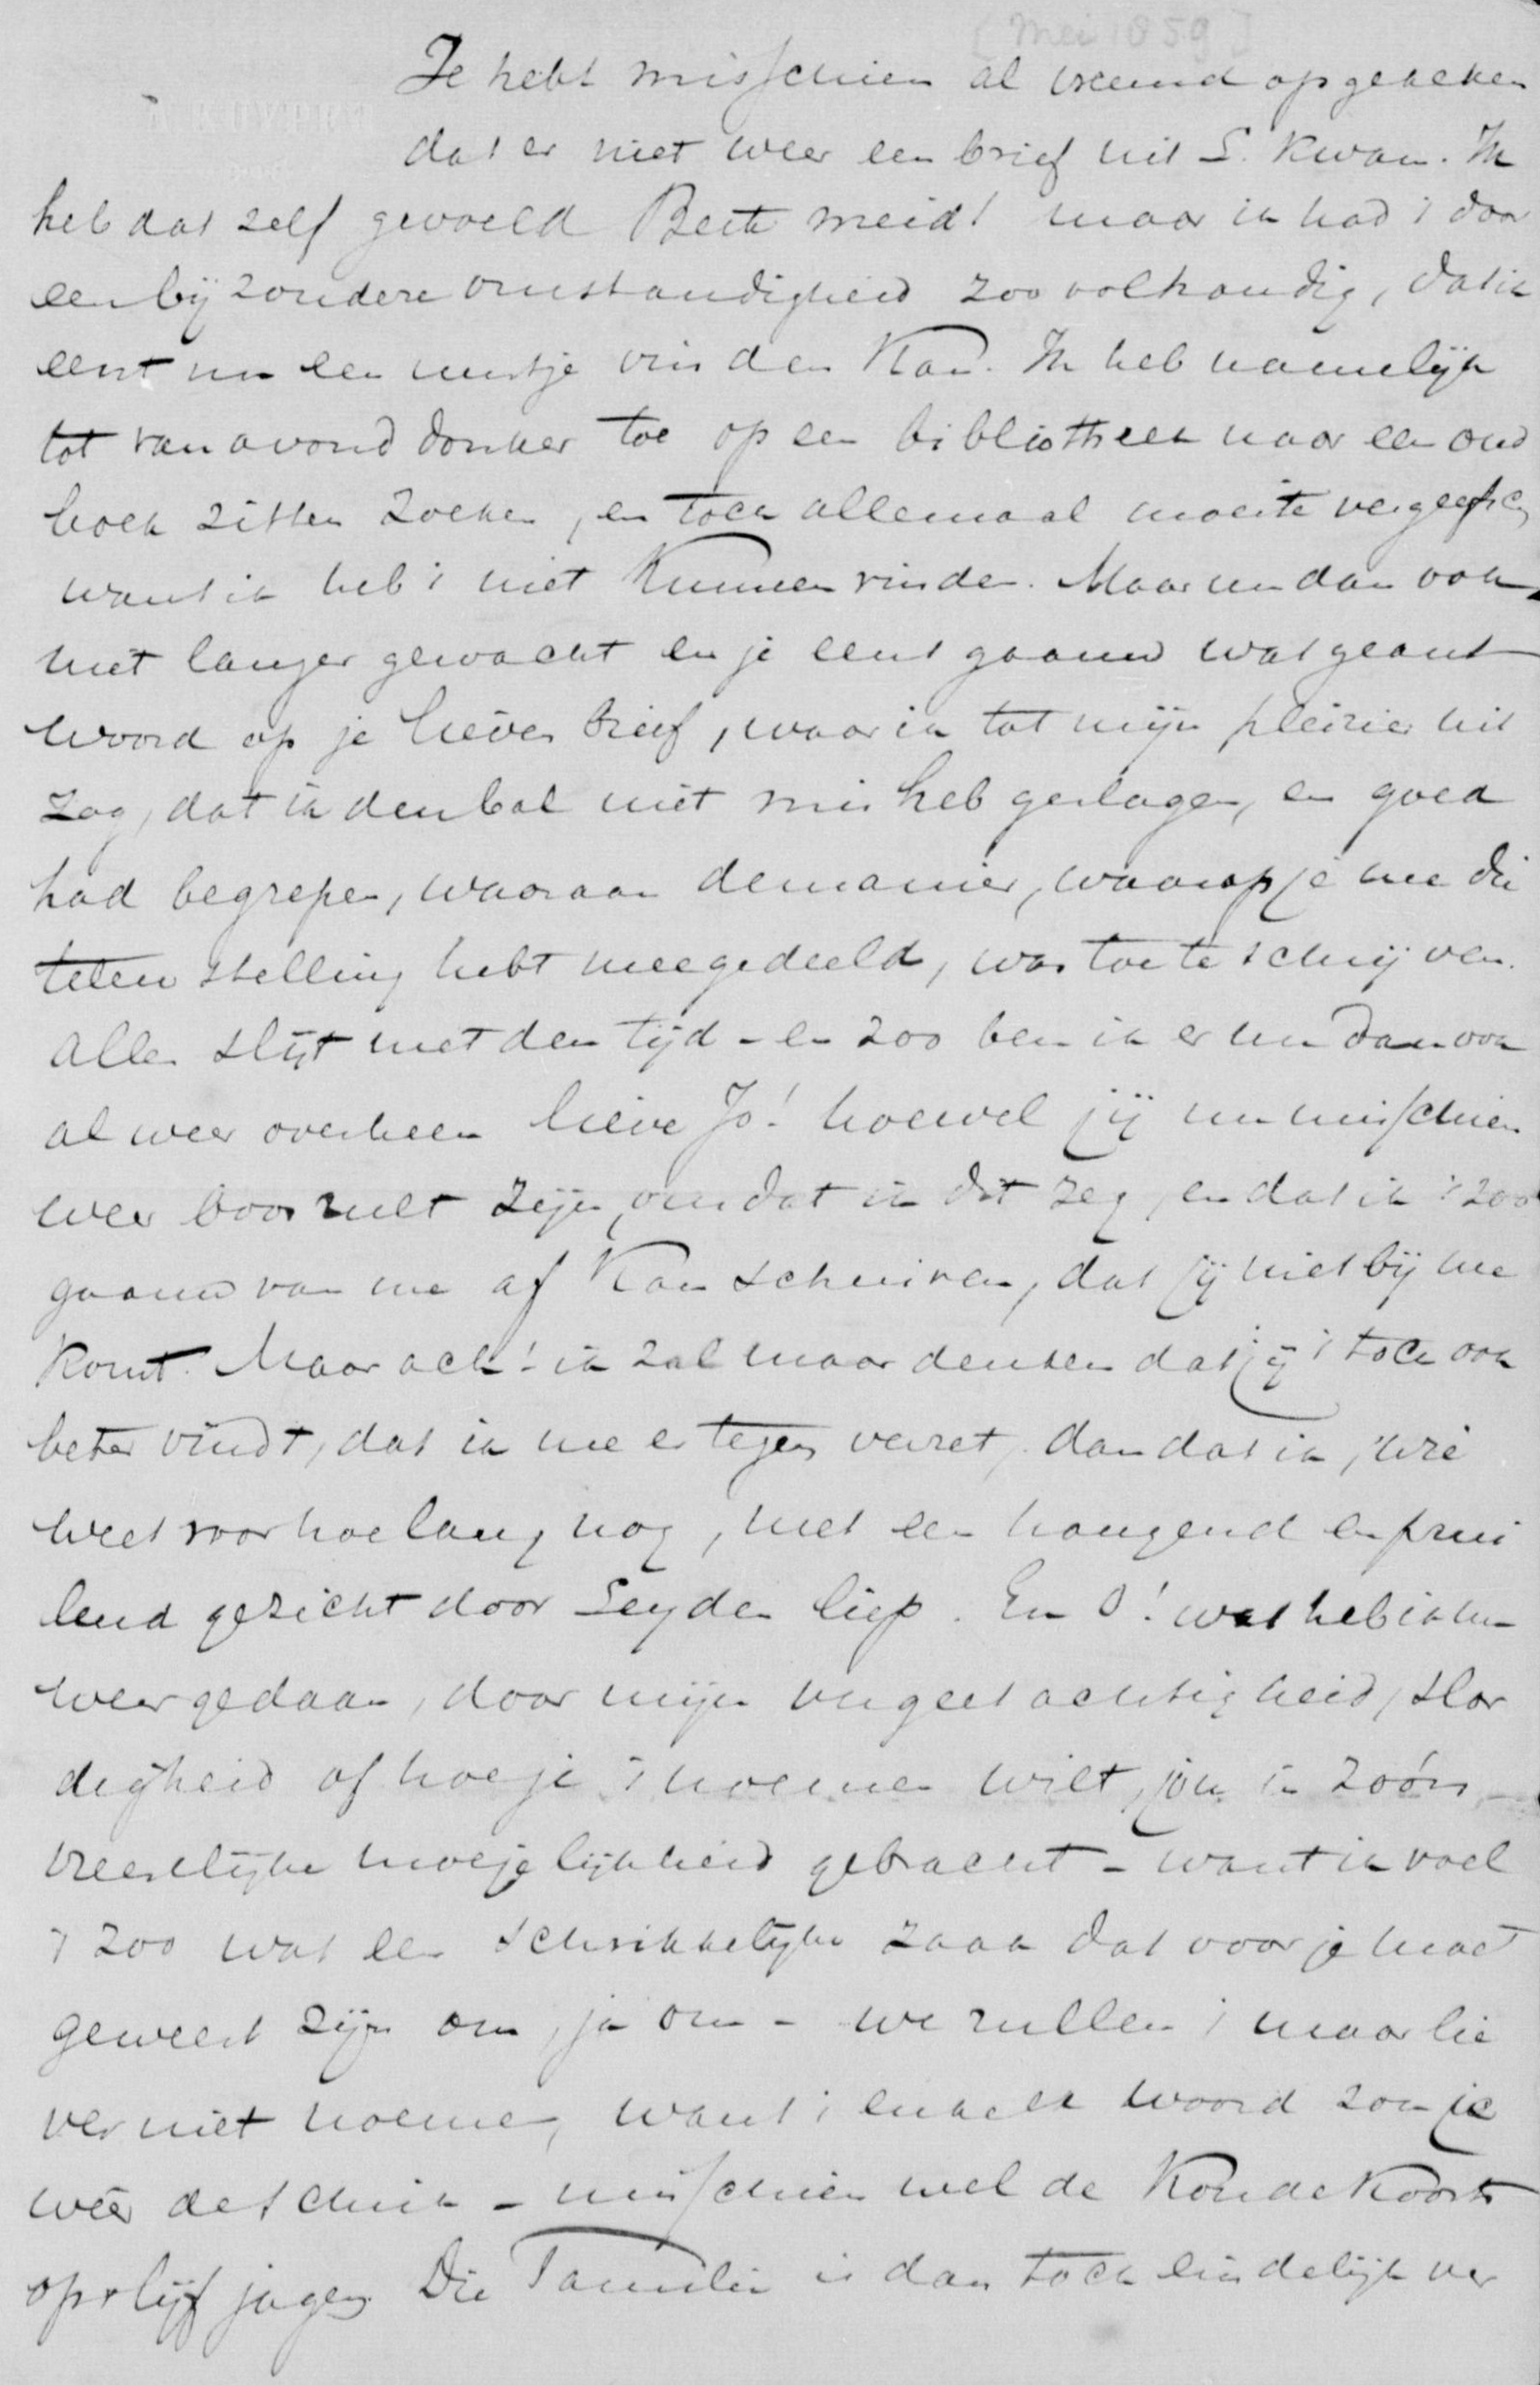 [Mei 1859]
Je hebt misschien al vreemd opgekeken
dat er niet weer een brief uit L. kwam. Ik
heb dat zelf gevoeld Beste meid! maar ik had 't door
een bijzondere omstandigheid zoo volhandig, dat ik
eerst nu een uurtje vinden kan. Ik heb namelijk
tot van avond donker toe op een bibliotheek naar een oud
boek zitten zoeken, en toch allemaal moeite vergeefsch,
want ik heb 't niet kunnen vinden. Maar nu dan ook
niet langer gewacht en je eens gaauw wat geant
woord op je lieven brief, waar ik tot mijn pleizier uit
zag, dat ik den bal niet mis heb geslagen, en goed
had begrepen, waaraan de manier, waarop je me die
teleurstelling hebt meegedeeld, was toe te schrijven.
Alles slijt met den tijd - en zoo ben ik er nu dan ook
al weer overheen lieve Jo! hoewel jij nu misschien
weer boos zult zijn, omdat ik dit zeg, en dat ik 't zoo
gaauw van me af kan schuiven, dat jij niet bij me
komt. Maar ach! ik zal maar denken dat jij 't toch ook
beter vindt, dat ik me er tegen verzet, dan dat ik, wie
weet voor hoe lang nog, met een hangend en prui
lend gezicht door Leyden liep. En O! wat heb ik nu
weer gedaan, door mijn vergeetachtigheid, slor
digheid of hoe je 't noemen wilt, jou in zóó'n
vreeselijke moejelijkheid gebracht - want ik voel
't zoo wat een schrikkelijke zaak dat voor je moet
geweest zijn om, ja om - we zullen 't maar lie
ver niet noemen, want 't enkele woord zou je
wéér de schrik - misschien wel de koude koorts
op 't lijf jagen. Die Familie is dan toch eindelijk ver